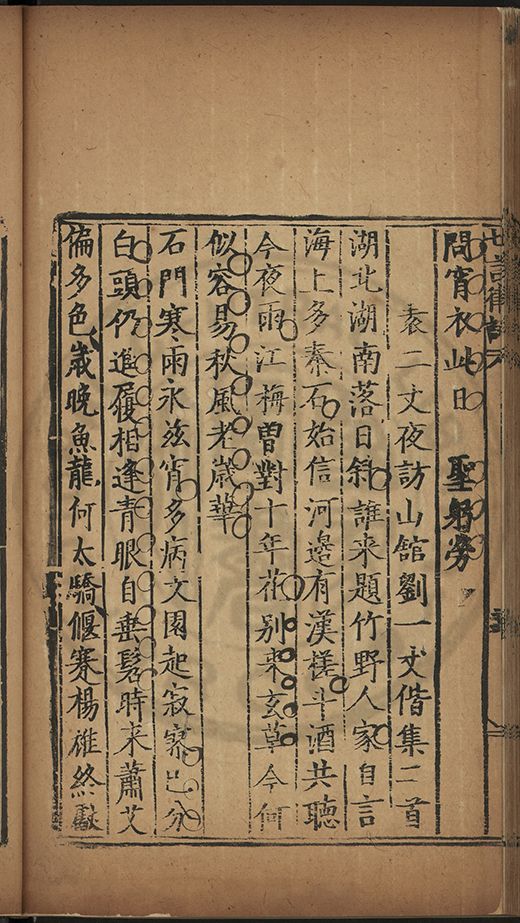 問宵衣此日 聖躬勞
袁二丈夜訪山舘劉一丈偕集二首
湖北湖南落日斜誰来題竹野人家自言
海上多秦石始信河邉有漢槎斗酒共聽
今夜雨江梅曽對十年花别来玄草今何
似容易秋風老歳華
石門寒雨永兹宵多病文園起寂寥已分
白頭仍進履相逢青眼自垂髫時来蕭艾
偏多色歳晚魚龍何太驕偃蹇楊雄終獻